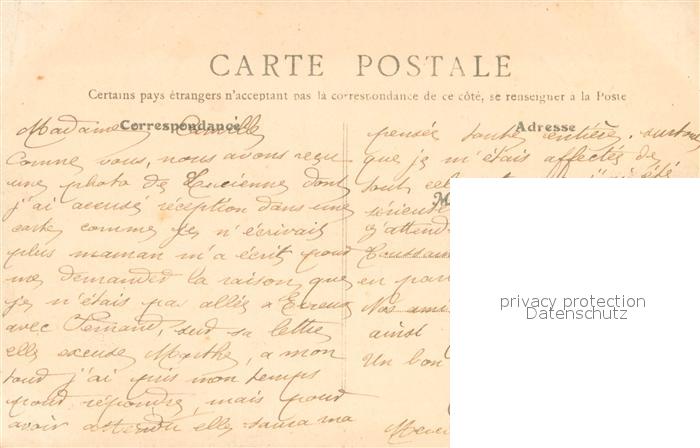 CARTE POSTALE
Certains pays étrangers n'acceptant pas la correspondance de ce côté, se renseigner à la Poste
Correspondance
Adresse
Madame
Comme vous, nous avons reçu
une photo de Lucienne dont
j'ai accusé réception dans une
carte comme je n'écrivais
plus maman m'a écrit pour
me demander la raison, que
je n'étais pas allée a Evreux
avec Fernand, sur sa lettre
elle excuse Marthe, a mon
tour j'ai pris mon temps
pour répondre, mais pour
avoir attendu elle saura ma
pensée toute entière, surtout
que je m'étais affectée de
tout
j'attend
Toussain
en par
Nos ami
ainsi
Un bon
Merci
privacy protection
Datenschutz